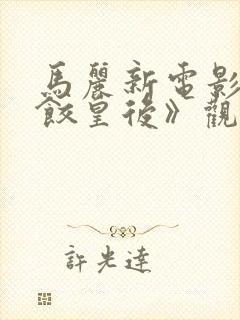 馬麗新電影
餃皇後》觀
許光達